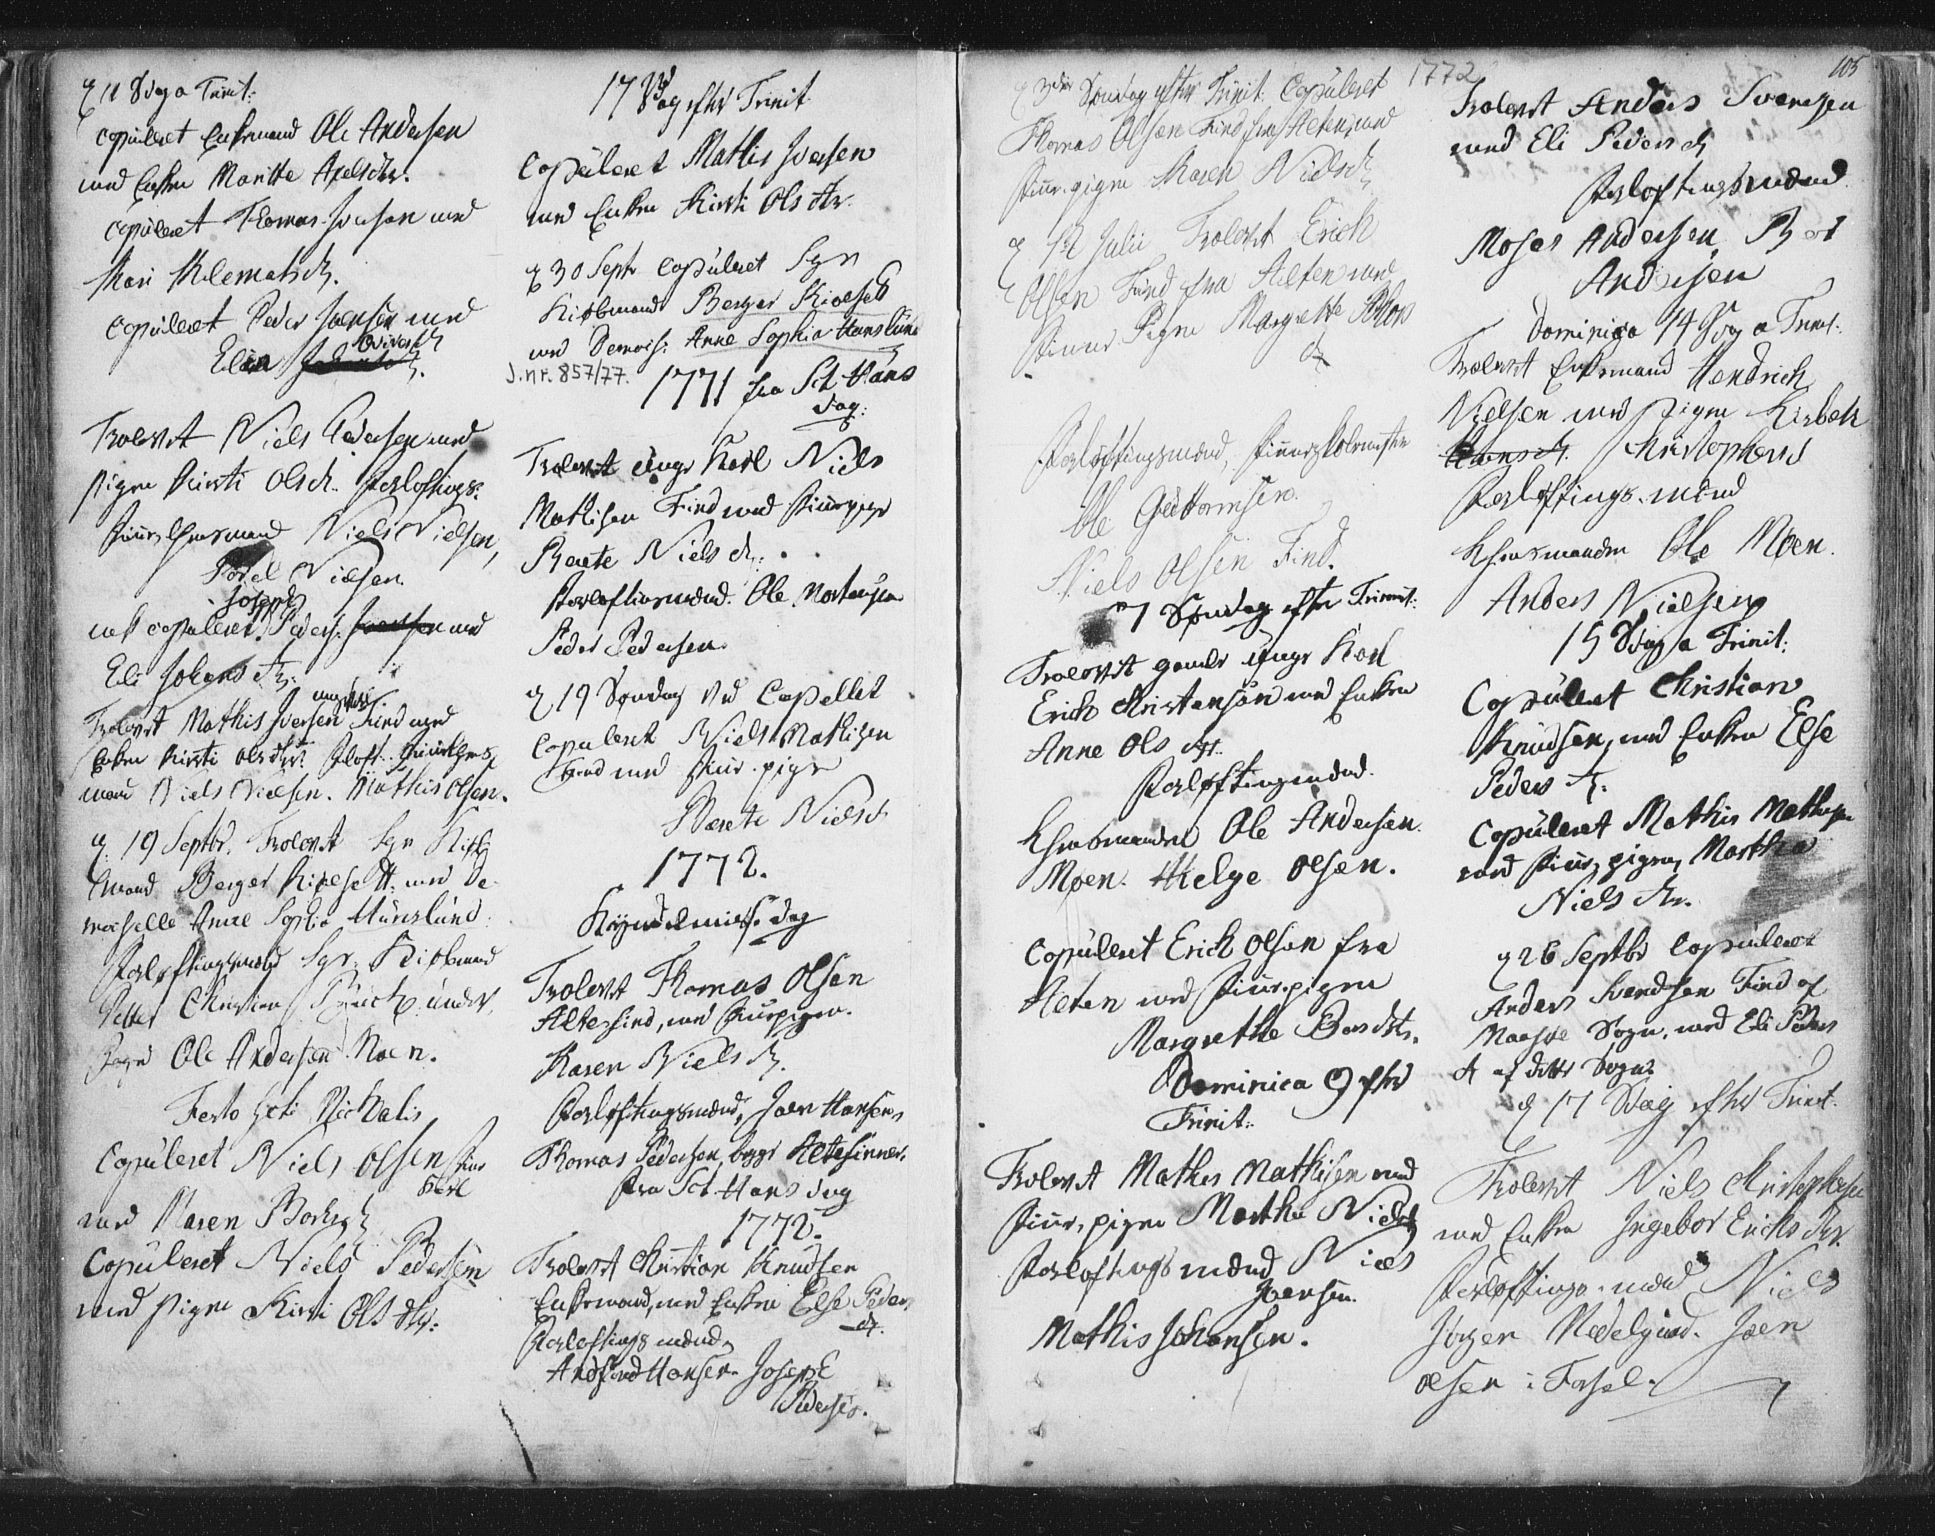 11 Sdag a Trinit:
copuleret Enkemand Ole Andersen
med Enken Maritte Axelsdtr.
copuleret Thomas Jonsen med
Mari Klemetsd.
copuleret Peder Joensen med
Elen Iversd.
Trolovet Niels Pedersen med
pigen Kirsti Olsd. Forloftings:
Niels Nielsen,
Povel Nielsen.
Joseph
copuleret Peders: med
Eli Johansdtr:
Trolovet Mathis Iversen Find med
Enken Kirsti Olsdtr. Floft.
mand Niels Nielsen. Mathis Olsen.
19 Septbr. Trolovet Sgr Kiøb
mand Berger Kioesett med De
moiselle Anne Sophia Hunslund
Forloftingsmænd Sgr. Kiøbmand
Peter Christian
Ole Andersen Moen.
Festo Scti Michalis
Copuleret Niels Olsen fin
Karl
med Maren Bordsd
Copuleret Niels Pedersen
med pigen Kirsti Olsdtr:
17 Sdag efter Trinit
Copuleret Mathis Iversen
med Enken Kirsti Olsdtr.
30 Septr copuleret Sgr
Kiøbmand Berger Kioesett
med Demois: Anne Sophia Hunslund
J.nr. 857/77.
1771 fra Sct Hans
dag:
Trolovet unge Karl Niels
Mathisen Find med finnepige
Berete Nielsd:
Forloftingsmænd. Ole Mortensen
Peder Pedersen.
19 Søndag ved Capellet
Copuleret Niels Mathisen
Find med finne pige
Berete Nielsd
1772.
Kyndelmiss: dag
Trolovet Thomas Olsen
Altefind, med finnepigen.
Karen Nielsd.
Forloftingsmænd, Joen Hansen,
Thomas Pedersen, begge Altefinner.
Fra Sct Hans dag
1772.
Trolovet Christian Knudsen
Enkemand, med Enken Else Peders
d.
Forloftings mænd
Hansen. Joseph
Pedersen.
1772
105
3die Søndag efter Trinit. Copuleret
Thomas Olsen Find fra Alten, med
finne pigen Karen Nielsd
Julii Trolovet Erich
Olsen Find fra Alten med
finne Pigen Margrette Bors
d
Forloftingsmænd,
Ole Guttormsen.
Niels Olsen Find.
7 Søndag efter Trinit:
Trolovet gamle unge Karl
Erich Christensøn med Enken
Anne Olsdtr.
Forloftingsmænd.
Ole Andersen
Moen. Helge Olsen.
Copuleret Erich Olsen fra
Alten med finnepigen
Margrethe Bordsdtr.
Dominica 9 efter
Trinit:
Trolovet Mathis Mathisen med
finne, pigen Martha Nielsd
Forloftings mænd Niels
Joensen.
Mathis Johansen.
Trolovet Anders Svensen
med Eli Pedersd
Forloftingsmænd
Moses Andersen,
Andersen
Dominica 14 Sdag a Trinit:
Trolovet Enkemand Hendrich
Nielsen med pigen Lisbeth
Christophersd
Forloftings. mænd
Ole Moen.
Anders Nielsen
15 Sdag a Trinit:
Copuleret Christian
Knudsen, med Enken Else
Pedersd.
Copuleret Mathis Mathisen
med finne, pigen, Martha
Nielsdtr.
26 Septbr Copuleret
Anders Svendsen Find af
Maasøe Sogn, med Eli Peders
d af dette Sogn.
17 Sdag efter Trinit.
Trolovet Niels Christophersen
med Enken Ingebor Erichsdtr.
Forloftings. mænd Niels
Jørgen Joen
Olsen i